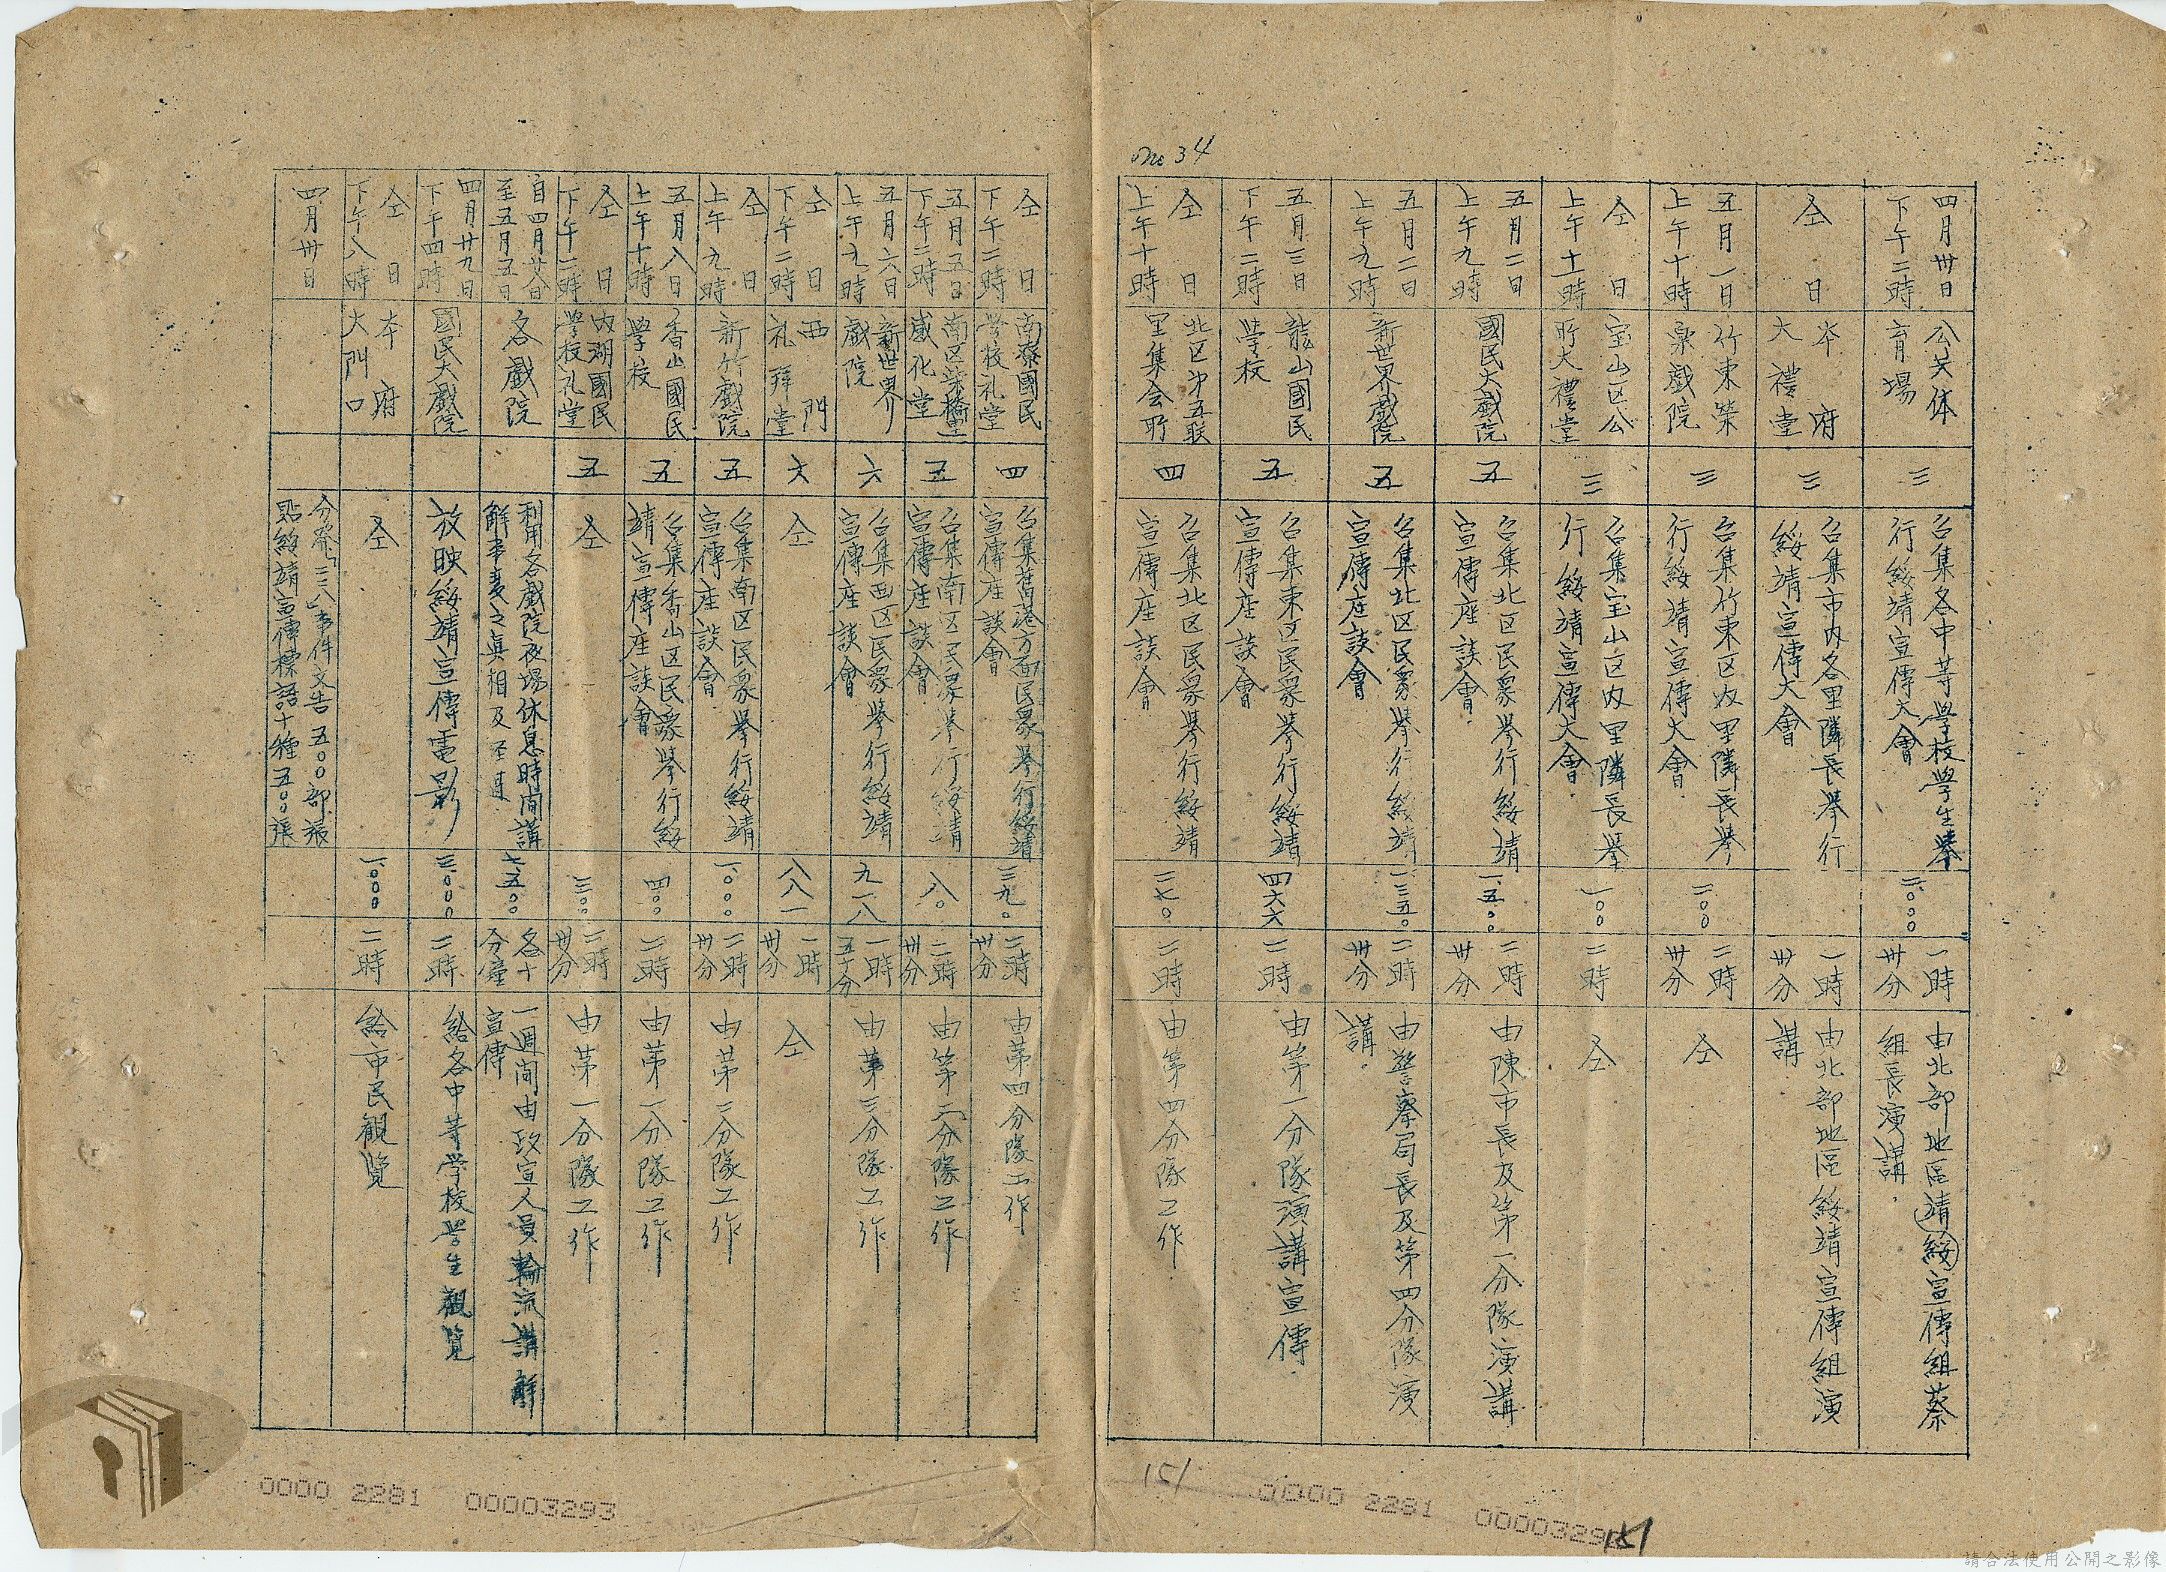 no 34
四月卅日
下午二時
公共体
育場
三
召集各中等學校學生舉
行綏靖宣傳大會
二〇〇〇
一時
卅分
由北部地區靖綏宣傳組蔡
組長演講.
仝 日
本府
大禮堂
三
召集市内各里隣長舉行
綏靖宣傳大會
一時
卅分
由北部地區綏靖宣傳組演
講
五月一日
上午十時
竹東榮
樂戲院
三
召集竹東区内里隣長舉
行綏靖宣傳大會
二〇〇
二時
卅分
仝
仝 日
上午十一時
宝山区公
所大禮堂
三
召集宝山区内里隣長舉
行綏靖宣傳大會.
一〇〇
二時
仝
五月二日
上午九時
國民大戲院
五
召集北区民衆舉行綏靖
宣傳座談會.
一五〇〇
二時
卅分
由陳市長及第一分隊演講
五月二日
上午九時
新世界戲院
五
召集北区民衆舉行綏靖
宣傳座談會
一三五〇
二時
卅分
由警察局長及第四分隊演
講.
五月三日
下午二時
龍山國民
學校
五
召集東区民衆舉行綏靖
宣傳座談會
四六六
二時
由第一分隊演講宣傳.
仝 日
上午十時
北区第五联
里集会所
四
召集北区民衆舉行綏靖
宣傳座談會
二七〇
二時
由第四分隊工作
仝 日
下午二時
南寮國民
学校礼堂
四
召集舊港方面民衆舉行綏靖
宣傳座談會
三九〇
二時
卅分
由第四分隊工作
五月五日
下午二時
南区柴橋里
感化堂
五
召集南区民衆舉行綏靖
宣傳座談會
八〇
二時
卅分
由第二分隊工作
五月六日
上午九時
新世界
戲院
六
召集西区民衆舉行綏靖
宣傳座談會
九一八
一時
五十分
由第三分隊工作
仝 日
下午二時
西門
礼拜堂
六
仝
八八一
一時
卅分
仝
仝 日
上午九時
新竹戲院
五
召集南区民衆舉行綏靖
宣傳座談會
一〇〇〇
二時
卅分
由第二分隊工作
五月八日
上午十時
香山國民
學校
五
召集香山区民衆舉行綏
靖宣傳座談會
四〇〇
二時
由第一分隊工作
仝 日
下午二時
内湖國民
學校礼堂
五
仝
三〇〇
二時
卅分
由第一分隊工作
自四月廿八日
至五月五日
各戲院
利用各戲院夜場休息時间講
解事変之真相及
七五〇〇
各十
分鐘
一週间由政宣人員輪流講解
宣傳
四月廿九日
下午四時
國民大戲院
放映綏靖宣傳電影
三〇〇〇
二時
給各中等学校學生觀覽
仝 日
下午八時
本府
大門口
仝
一〇〇〇
二時
給市民觀覽
四月卅日
分寄「二二八」事件文告五〇〇部張
貼綏靖宣傳標語十種五〇〇張
151
0000 2281 00003293
0000 2281 0000329
151
請合法使用公開之影像